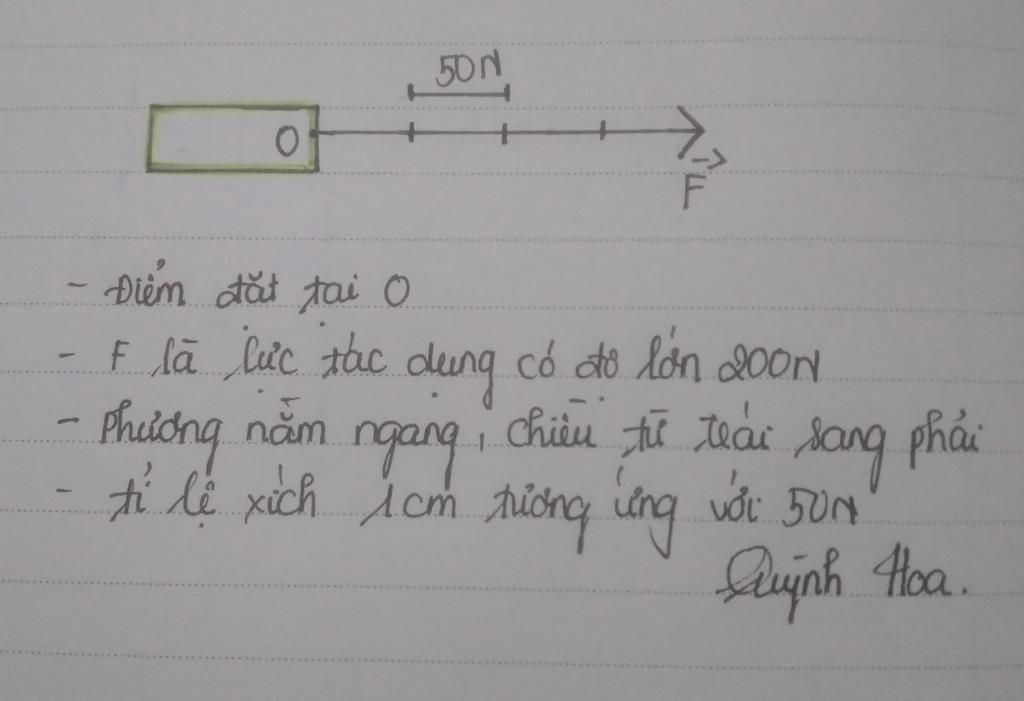 50N
O
F
- Điểm đặt tại O
- F là lực tác dụng có độ lớn 200N
- Phương nằm ngang, chiều từ trái sang phải
- tỉ lệ xích 1cm tương ứng với 50N
Quỳnh Hoa.